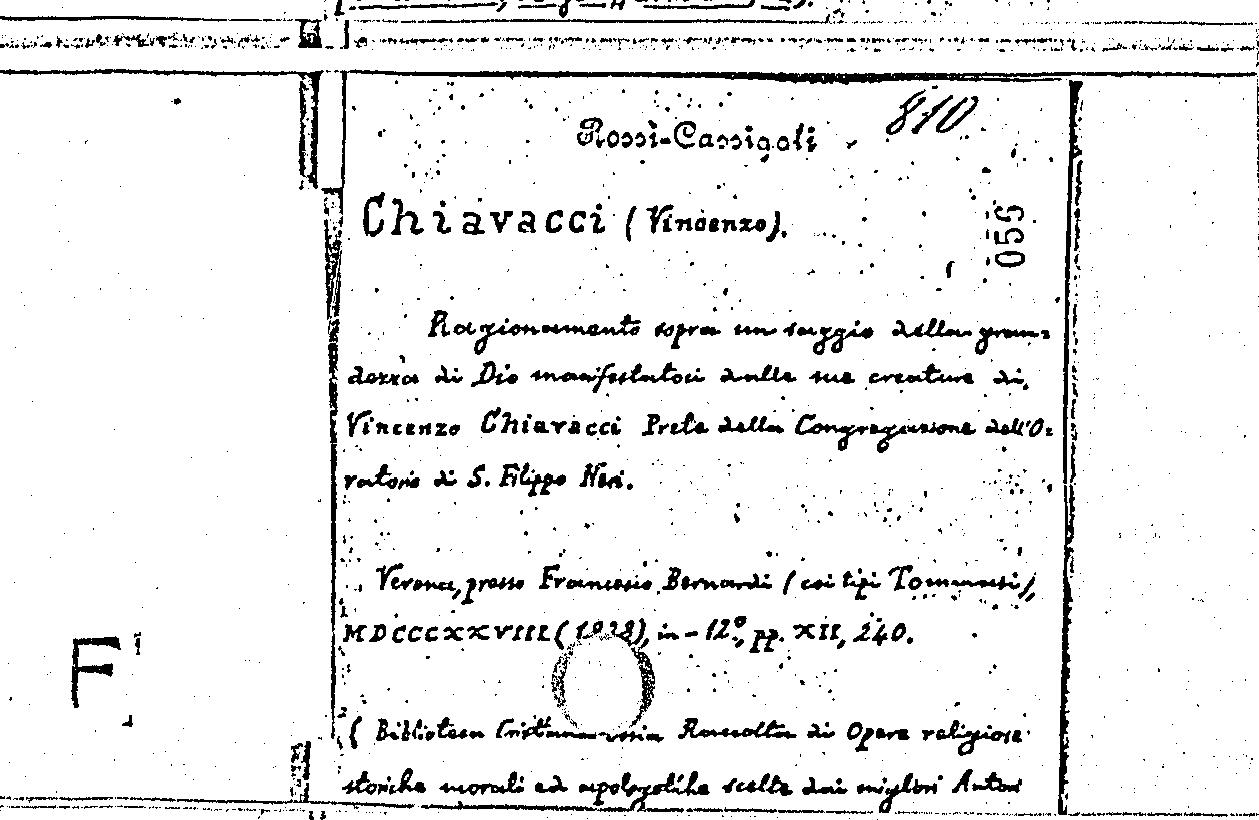 Rossi-Cassigoli 810
Chiavacci (Vincenzo).
056
Ragionamento sopra un saggio della gran=
dezza di Dio manifestataci dalle sue creature di
Vincenzo Chiavacci Prete della Congregazione dell'O=
ratorio di S. Filippo Neri.
Verona, presso Francesco Bernardi (coi tipi Tommasi),
MDCCCXXVIII (1828), in-12º, pp. XII, 240.
( Biblioteca Cristiana ossia Raccolta di Opere religiose
storiche morali ed apologetiche scelte dai migliori Autori
F